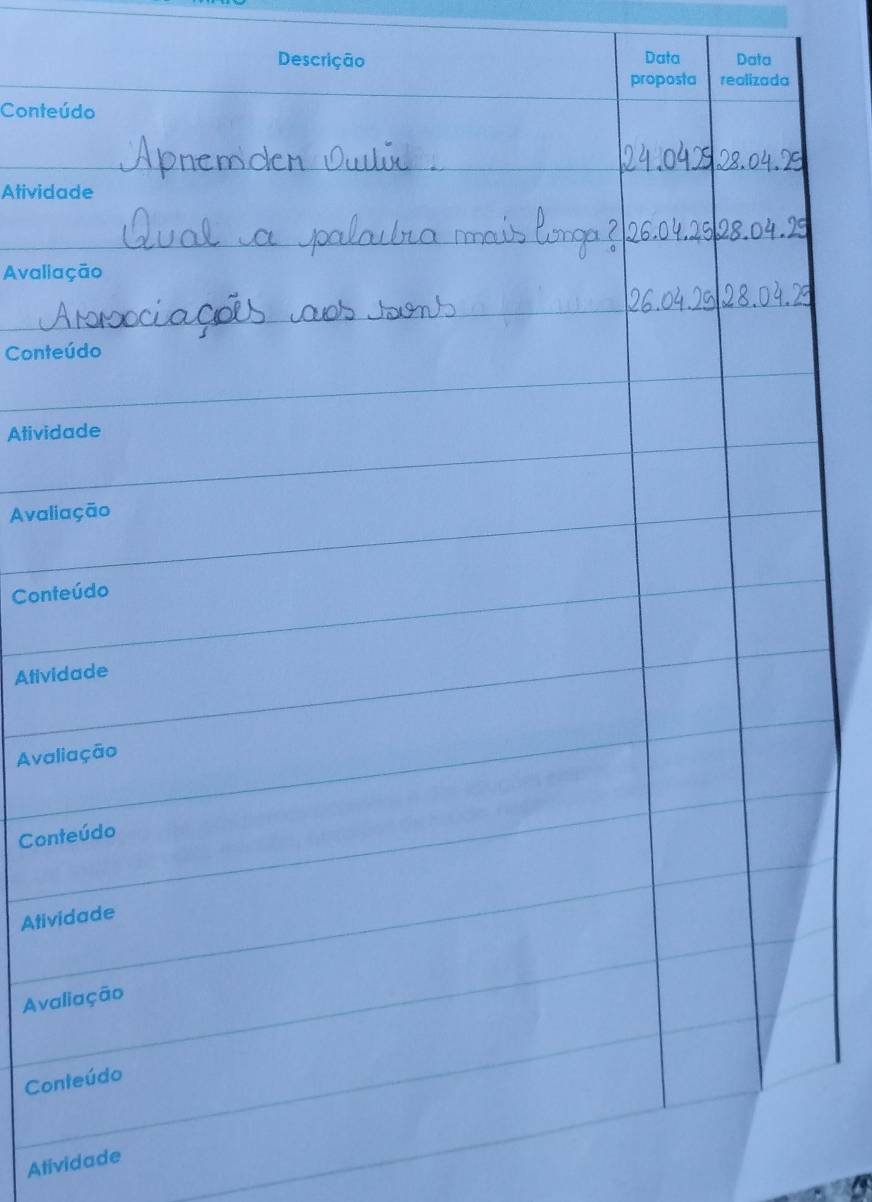 Descrição Data proposta Data realizada
Conteúdo
Apremden Ouvir. 24.04.25 28.04.25
Atividade
Qual a palavra mais longa? 26.04.25 28.04.25
Avaliação
Associações aos sons 26.04.25 28.04.25
Conteúdo
Atividade
Avaliação
Conteúdo
Atividade
Avaliação
Conteúdo
Atividade
Avaliação
Conteúdo
Atividade